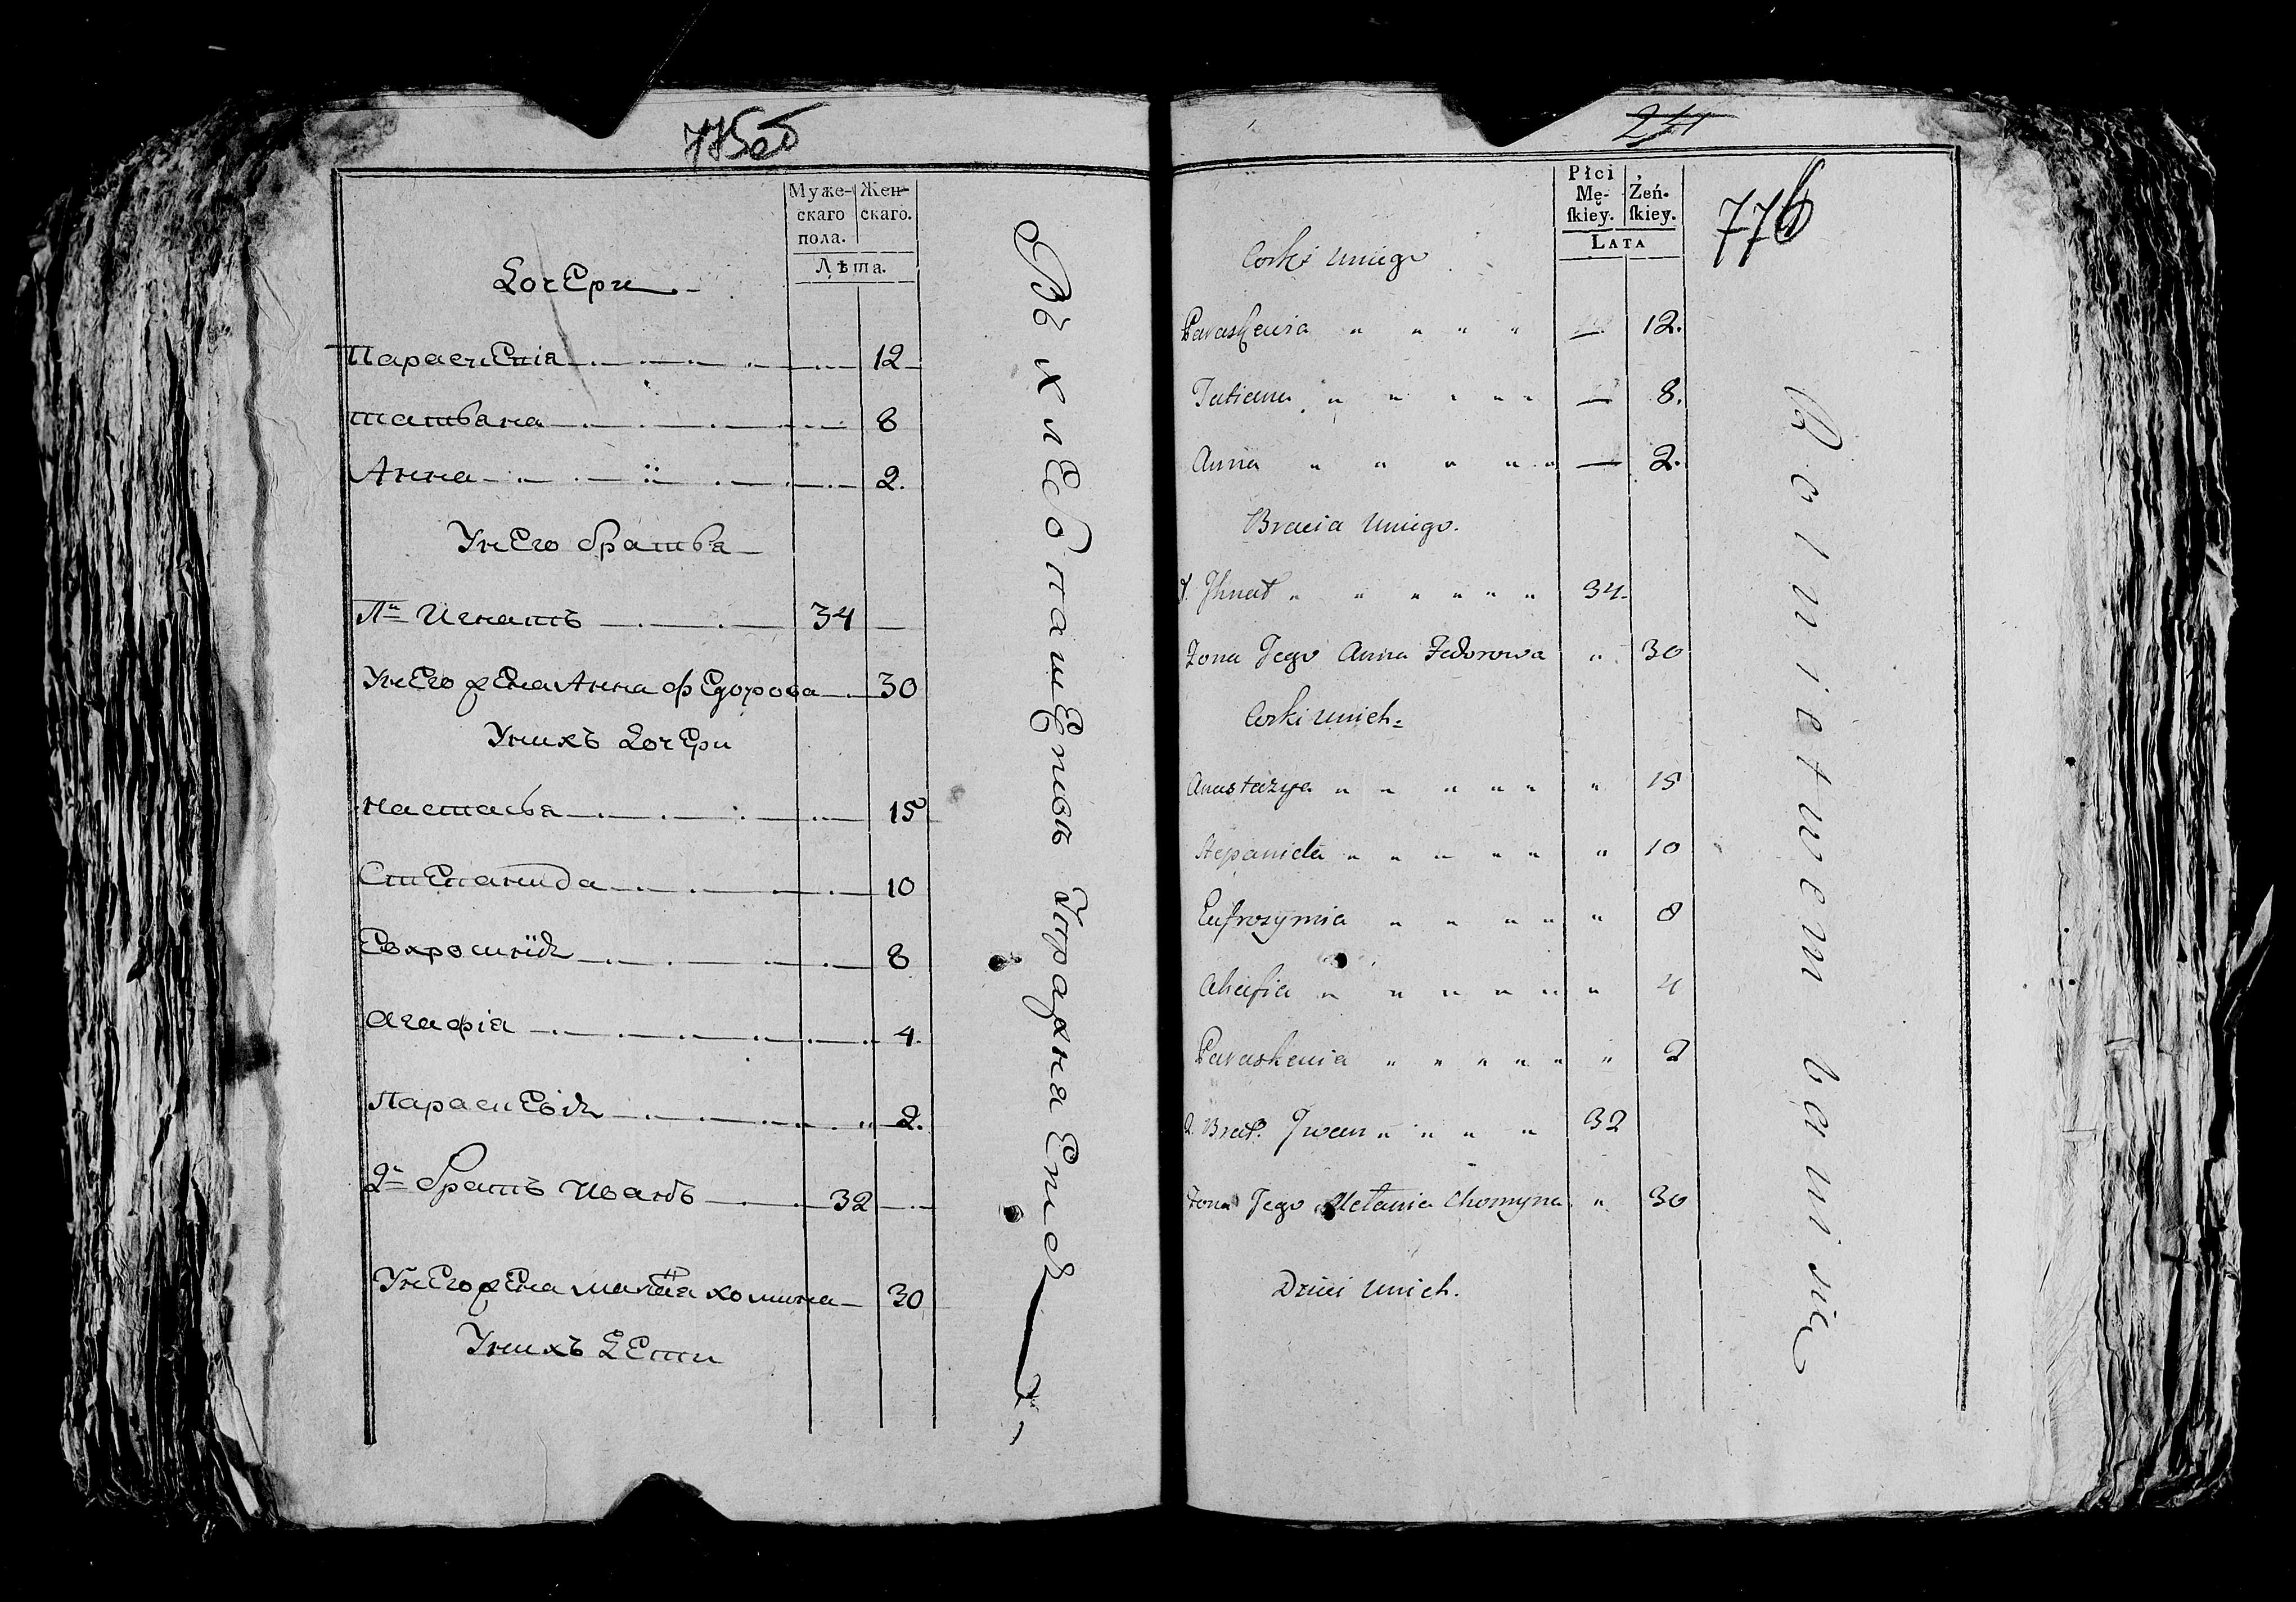 775об
Муже-
скаго
пола.
Жен-
скаго.
Лѣта.
Дочери
Параскевія 12
татьяна 8
Анна 2.
Унего братья
1й Игнатъ 34
Унего жена Анна федорова 30
Унихъ Дочери
настасья 15
Степанида 10
Евхросинія 8
Агафія 4.
Параскевія 2.
2й братъ Иванъ 32
Унего жена маланія хомина 30
Унихъ Дети
Въ хлебопашетвѣ Упражняется
241
776
Płci
Mę-
ſkiey.
Żeń-
ſkiey.
LATA
Corki uniego
Paraskewia " " " " — 12.
Tatiana " " " " " — 8.
Anna " " " " " — 2.
Bracia uniego.
1. Jhnat " " " " " " 34.
Żona Jego Anna Fedorowa " 30
Corki unich
Anastazya " " " " " " 15
Stepanida " " " " " " 10
Eufrozynia " " " " " 8
Ahafia " " " " " " 4
Paraskewia " " " " " " 2
2. Brat. Jwan " " " " 32
Żona Jego Melania Chomyna " 30
Dzieci unich.
Rolnictwem bawi się